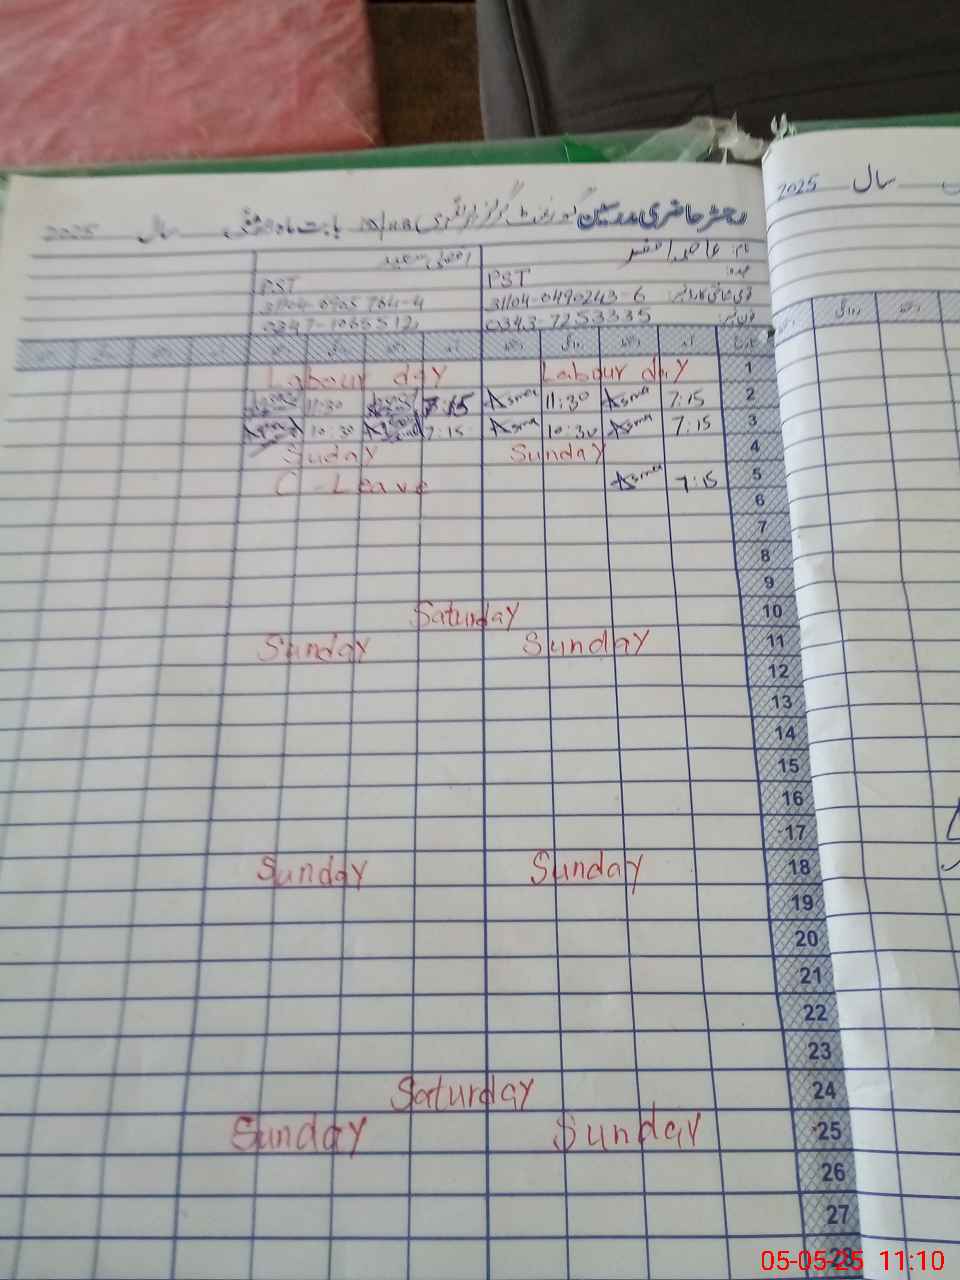 2025 سال
رجسٹر حاضری مدرسین گورنمنٹ گرلز بابت ماہ سال 2025
نام:
عہدہ: PST PST
31104-0490243-6
فون نمبر: 0343-7253335
1 Labour day Labour day
2 7:15 Asma 11:30 Asma 7:15 11:30
3 7:15 Asma 10:30 Asma 7:15 10:30
4 Sunday Suday
5 7:15 Asma C-Leave
6
7
8
9
10 Saturday
11 Sunday Sunday
12
13
14
15
16
17
18 Sunday Sunday
19
20
21
22
23
24 Saturday
25 Sunday Sunday
26
27
28
05-05-25 11:10